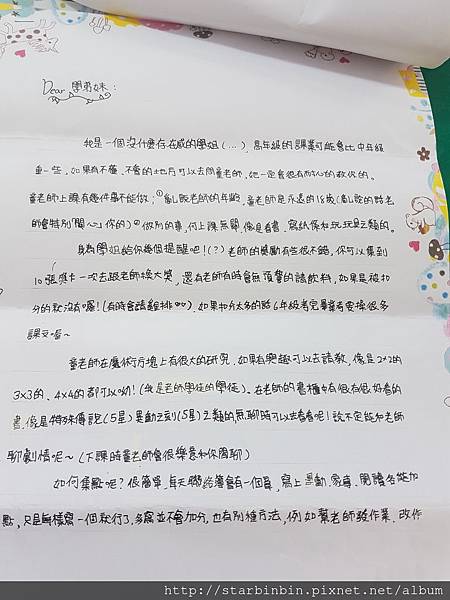 Dear 學弟妹：
我是一個沒什麼存在感的學姐(...)，高年級的課業可能會比中年級
重一些，如果有不懂、不會的地方可以去問童老師，她一定會很有耐心的教你的。
童老師上課有幾件事不能做：①亂說老師的年齡，童老師是永遠的18歲(亂說的話老
師會特別「關心」你的)②做別的事，何上課無關，像是看書、寫紙條和玩玩具之類的。
身為學姐給你幾個提醒吧！(？)老師的獎勵有些很不錯，你可以集到
10張獎卡一次去跟老師換大獎，還有老師有時會無預警的請飲料，如果是被扣
分的就沒有喔！(有時會請雞排)如果扣分太多的話6年級考完畢業考要揹很多
課文唷~
童老師在魔術方塊上有很大的研究，如果有興趣可以去請教，像是2×2的
3×3的、4×4的都可以呦！(我是老師學徒的學徒)。在老師的書櫃中有很有很好看的
書，像是特殊傳說(5星)異動之刻(5星)之類的，無聊時可以去看看呢！說不定能和老師
聊劇情呢~(下課時童老師會很樂意和你閒聊)
如何集點呢？很簡單，每天聯絡簿會有一個喜，寫上運動、家事、閱讀各能加
點，只是每樣寫一個就行了，多寫並不會加分，也有別種方法，例如幫老師發作業、改作
http://starbinbin.pixnet.net/album